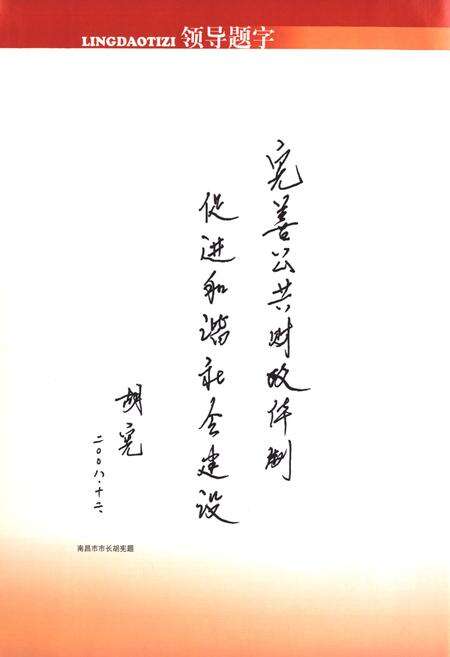 LINGDAOTIZI 领导题字
完善公共财政体制
促进和谐社会建设
胡宪
二〇〇八.十二
南昌市市长胡宪题